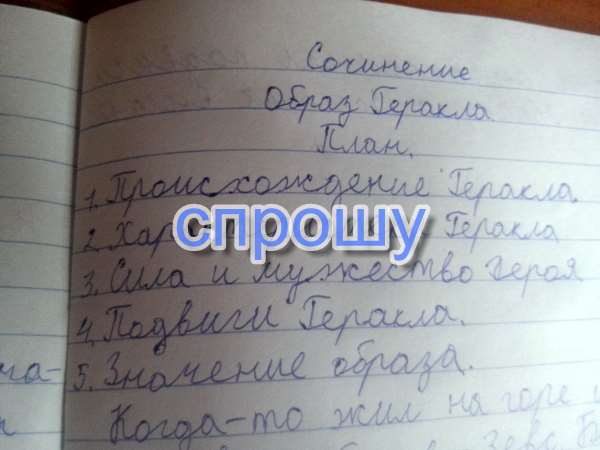 Сочинение
Образ Геракла
План.
1. Происхождение Геракла.
спрошу
2. Геракла
3. Сила и мужество героя
4. Подвиги Геракла.
5. Значение образа.
Когда-то жил на горе
Зевс